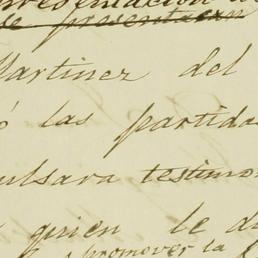 presentacion de
se presentaron
Martinez del
ó las partida
ulsara testimo
quien le d
promover la